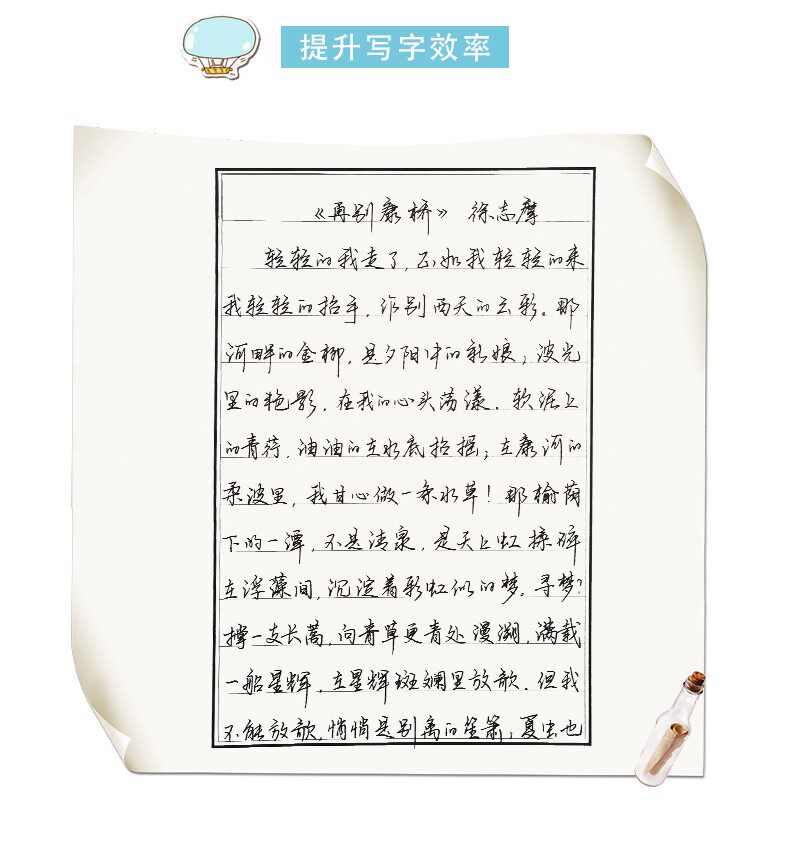 提升写字效率
《再别康桥》 徐志摩
轻轻的我走了,正如我轻轻的来
我轻轻的招手,作别西天的云彩。那
河畔的金柳,是夕阳中的新娘;波光
里的艳影,在我的心头荡漾。软泥上
的青荇,油油的在水底招摇;在康河的
柔波里,我甘心做一条水草!那榆荫
下的一潭,不是清泉,是天上虹揉碎
在浮藻间,沉淀着彩虹似的梦。寻梦?
撑一支长蒿,向青草更青处漫溯,满载
一船星辉,在星辉斑斓里放歌。但我
不能放歌,悄悄是别离的笙箫;夏虫也